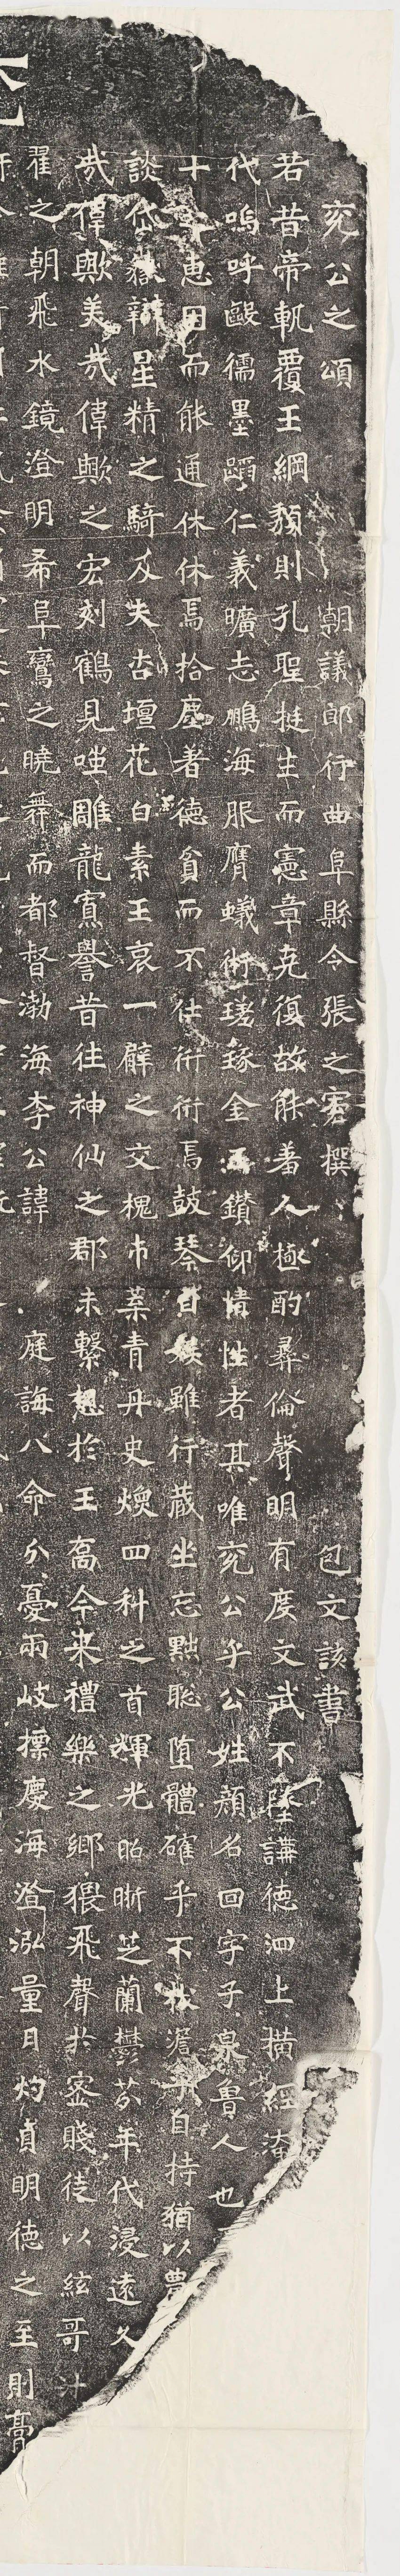 兖公之頌 朝議郎行曲阜縣令張之宏撰 包文該書
若昔帝軌覆王綱頹則孔聖挺生而憲章克復故能著人極酌彝倫聲明有度文武不墜講德泗上橫經
代嗚呼毆儒墨蹈仁義曠志鵬海服膺蟻術瑳琢金玉鑽仰情性者其唯兖公乎公姓顏名回字子泉魯人也
十 惠用而能通休休焉拾塵著德貧而不仕衎衎焉鼓琴自娛雖行藏坐忘黜聰墮體確乎不拔澹 自持猶以
談岱嶽辯星精之騎及夫杏壇花白素王哀一臂之交槐市葉青丹史煥四科之首輝光昭晰芝蘭欝芬年代浸遠久
哉偉歟美哉偉歟之宏刻鶴見嗤雕龍寡譽昔往神仙之郡未繫想於王喬今来禮樂之鄉猥飛聲於宓賤徒以絃哥
翟之朝飛水鏡澄明希阜鸞之曉舞而都督渤海李公諱 庭誨八命分憂兩岐標慶海澄泓量月灼貞明德之至則